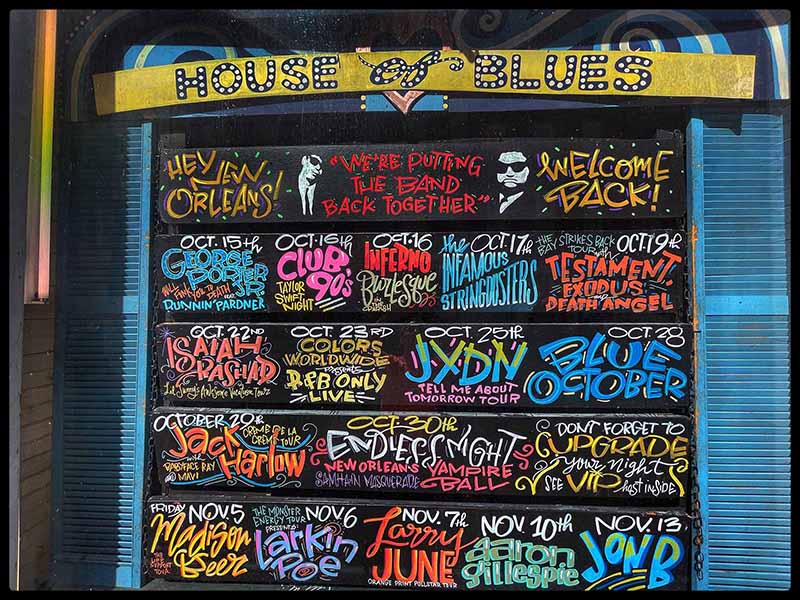 HOUSE of BLUES
HEY NEW ORLEANS!
"WE'RE PUTTING
THE BAND
BACK TOGETHER"
WELCOME
BACK!
OCT. 15th
GEORGE
PORTER
JR
WILL FUNK YOU TO DEATH
RUNNIN' PARDNER
OCT. 16th
CLUB
90's
TAYLOR
SWIFT
NIGHT
OCT. 16
INFERNO
Burlesque
OCT. 17th
the
INFAMOUS
STRINGDUSTERS
THE BAY STRIKES BACK
TOUR with
OCT. 19th
TESTAMENT
EXODUS
AND
DEATH ANGEL
OCT. 22ND
ISAIAH
RASHAD
Lil Sunny's Awesome Vacation Tour
OCT. 23RD
COLORS
WORLDWIDE
PRESENTS
R&B ONLY
LIVE
OCT. 25th
JXDN
TELL ME ABOUT
TOMORROW TOUR
OCT. 28
BLUE
OCTOBER
OCTOBER 29th
CRÈME DE LA
CRÈME TOUR
Jack
Harlow
with
BABYFACE RAY
@ MAVI
OCT. 30th
ENDLESS NIGHT
NEW ORLEANS VAMPIRE
SAMHAIN MASQUERADE BALL
DON'T FORGET TO
UPGRADE
your night
SEE VIP host inside
FRIDAY NOV. 5
Madison
Beer
THE LIFE SUPPORT TOUR
THE MONSTER
ENERGY TOUR
PRESENTS:
NOV. 6
Larkin
Poe
NOV. 7th
Larry
JUNE
ORANGE PRINT POLLSTAR TOUR
NOV. 10th
aaron
gillespie
NOV. 13
JON B